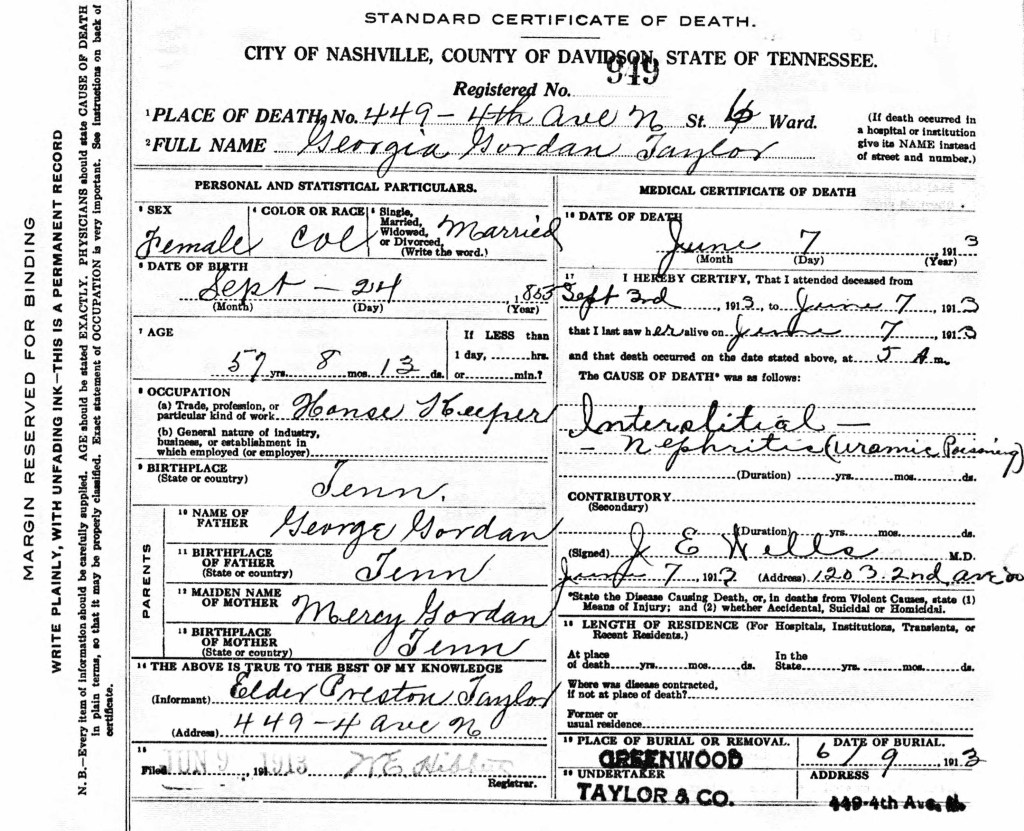 STANDARD CERTIFICATE OF DEATH.
CITY OF NASHVILLE, COUNTY OF DAVIDSON, STATE OF TENNESSEE.
949
Registered No.
1 PLACE OF DEATH, No. 449 - 4th Ave N St. 6 Ward.
(If death occurred in a hospital or institution give its NAME instead of street and number.)
2 FULL NAME Georgia Gordan Taylor
PERSONAL AND STATISTICAL PARTICULARS.
3 SEX
Female
4 COLOR OR RACE
Col
5 Single, Married, Widowed, or Divorced, (Write the word.)
Married
6 DATE OF BIRTH
Sept - 24, 1855
(Month) (Day) (Year)
7 AGE
57 yrs. 8 mos. 13 ds.
If LESS than
1 day, ........hrs.
or........min.?
8 OCCUPATION
(a) Trade, profession, or particular kind of work House Keeper
(b) General nature of industry,
business, or establishment in
which employed (or employer)
9 BIRTHPLACE
(State or country)
Tenn.
PARENTS
10 NAME OF FATHER
George Gordan
11 BIRTHPLACE OF FATHER
(State or country)
Tenn
12 MAIDEN NAME OF MOTHER
Mercy Gordan
13 BIRTHPLACE OF MOTHER
(State or country)
Tenn
14 THE ABOVE IS TRUE TO THE BEST OF MY KNOWLEDGE
(Informant) Elder Preston Taylor
(Address) 449 - 4 Ave N
15
Filed JUN 9 1913, 191
Registrar.
MEDICAL CERTIFICATE OF DEATH
16 DATE OF DEATH
June 7 1913
(Month) (Day) (Year)
17 I HEREBY CERTIFY, That I attended deceased from
Sept 3rd 1913, to June 7, 1913
that I last saw her alive on June 7, 1913
and that death occurred on the date stated above, at 5 A m.
The CAUSE OF DEATH* was as follows:
Interstitial -
- Nephritis (Uramic Poisoning)
(Duration) ........yrs. ........mos. ........ds.
CONTRIBUTORY
(Secondary)
(Duration) ........yrs. ........mos. ........ds.
(Signed) J E Wells M.D.
June 7, 1913 (Address) 1203 2nd ave So
*State the Disease Causing Death, or, in deaths from Violent Causes, state (1) Means of Injury; and (2) whether Accidental, Suicidal or Homicidal.
18 LENGTH OF RESIDENCE (For Hospitals, Institutions, Transients, or Recent Residents.)
At place of death........yrs. ........mos. ........ds.
In the State........yrs. ........mos. ........ds.
Where was disease contracted,
if not at place of death?
Former or
usual residence
19 PLACE OF BURIAL OR REMOVAL.
GREENWOOD
DATE OF BURIAL.
6/9, 1913
20 UNDERTAKER
TAYLOR & CO.
ADDRESS
449-4th Ave. N.
MARGIN RESERVED FOR BINDING
WRITE PLAINLY, WITH UNFADING INK—THIS IS A PERMANENT RECORD
N. B.—Every item of information should be carefully supplied. AGE should be stated EXACTLY. PHYSICIANS should state CAUSE OF DEATH
in plain terms, so that it may be properly classified. Exact statement of OCCUPATION is very important. See instructions on back of
certificate.